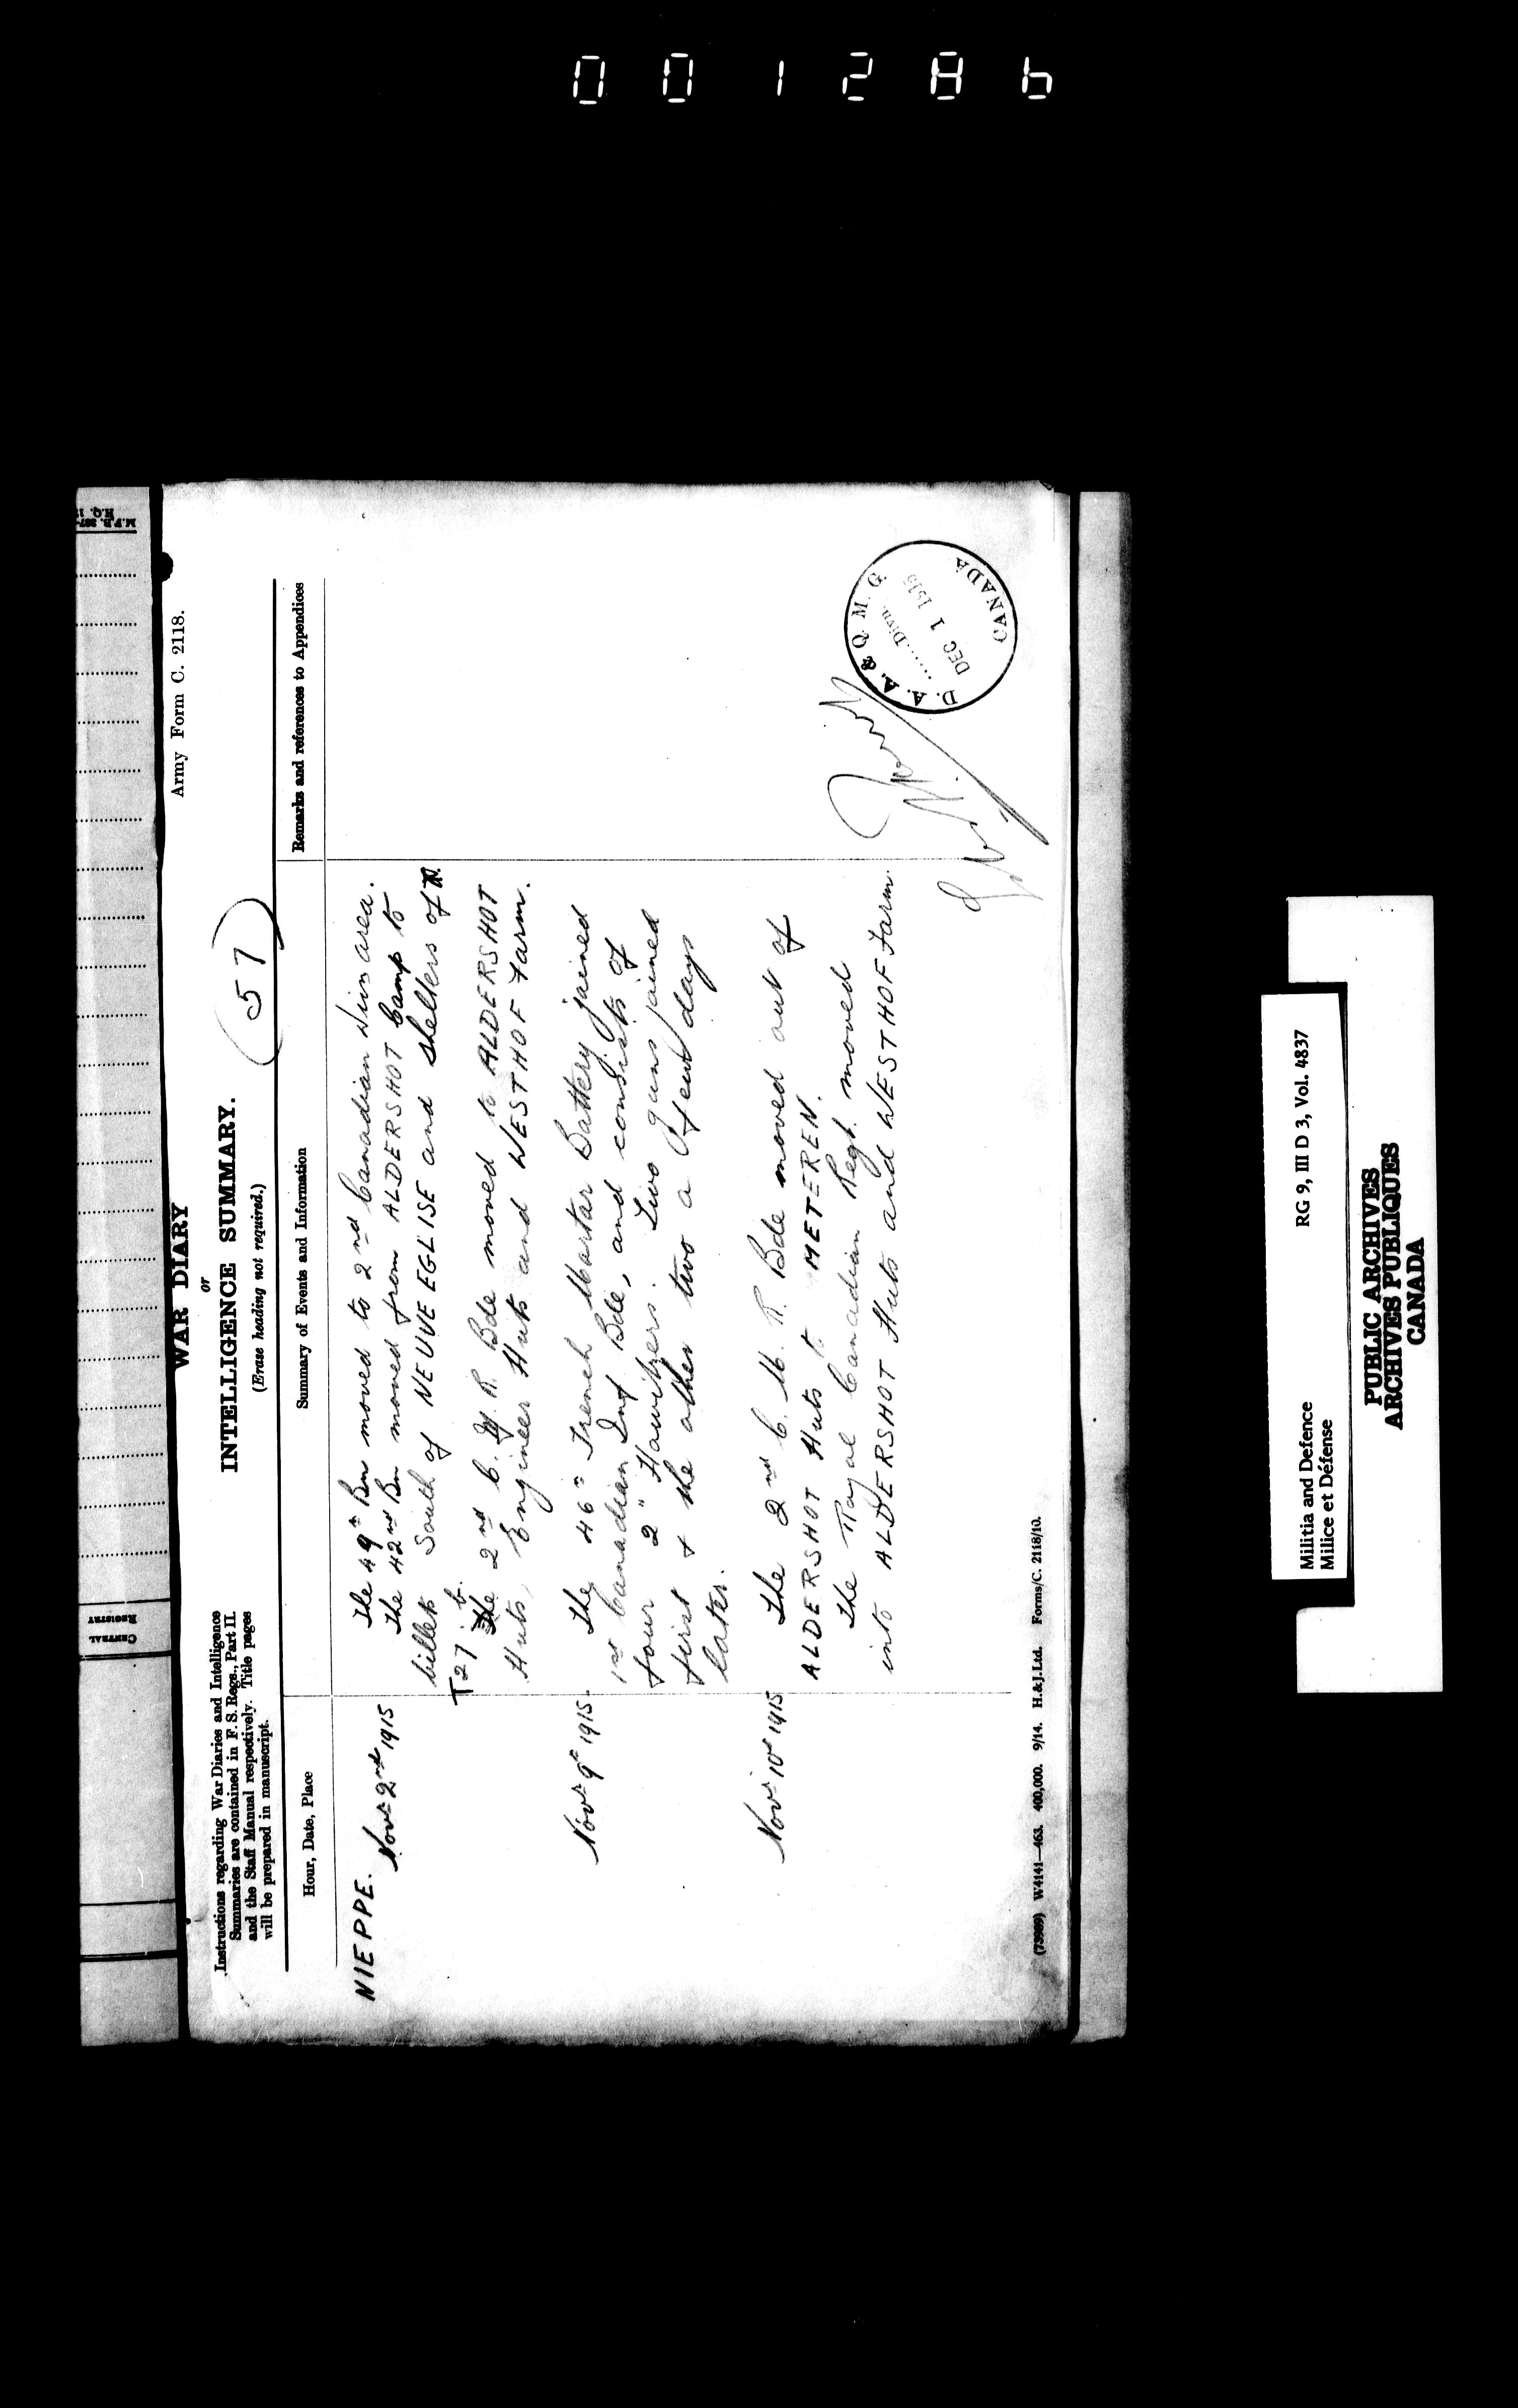 001286
Army Form C. 2118.
WAR DIARY
or
INTELLIGENCE SUMMARY.
(Erase heading not required.)
57
Instructions regarding War Diaries and Intelligence
Summaries are contained in F. S. Regs., Part II.
and the Staff Manual respectively. Title pages
will be prepared in manuscript.
Hour, Date, Place
Summary of Events and Information
Remarks and references to Appendices
NIEPPE.
Novr 2nd 1915
The 49th Bn moved to 2nd Canadian Divn area.
The 42nd Bn moved from ALDERSHOT Camp to
billets South of NEUVE EGLISE and shelters of
T27.b.
The 2nd C. M. R. Bde moved to ALDERSHOT
Huts, Engineer Huts and WESTHOF Farm.
Novr 9th 1915.
The 46th Trench Mortar Battery joined
1st Canadian Inf Bde, and consists of
four 2" Howitzers. Two guns joined
first & the other two a few days
later.
Novr 10th 1915
The 2nd C. M. R. Bde moved out of
ALDERSHOT Huts to METEREN.
The Royal Canadian Regt. moved
into ALDERSHOT Huts and WESTHOF Farm.
D. A. A. & Q. M. G
......Divn.
DEC 1 1915
CANADA
(73989) W4141—463. 400,000. 9/14. H.&J.Ltd. Forms/C. 2118/10.
CENTRAL
REGISTRY
Militia and Defence
Milice et Défense
RG 9, III D 3, Vol. 4837
PUBLIC ARCHIVES
ARCHIVES PUBLIQUES
CANADA